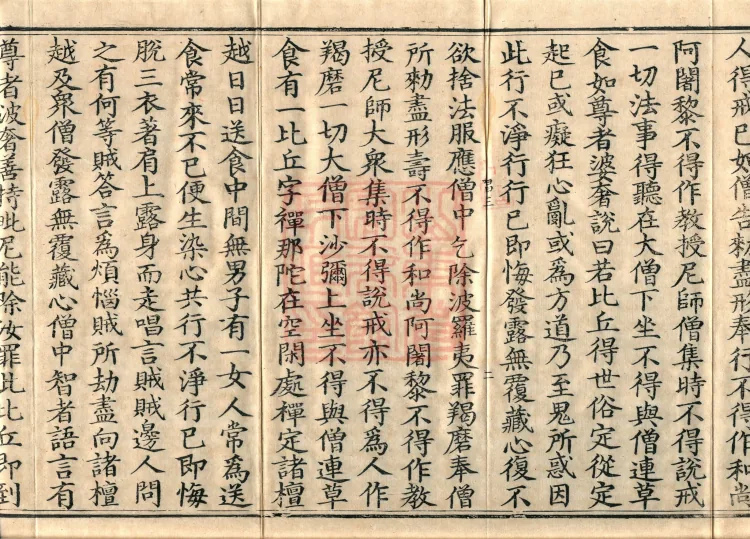 人得戒已如僧告勅盡形奉行不得作和尚
阿闍黎不得作教授尼師僧集時不得説戒
一切法事得聽在大僧下坐不得與僧連草
食如尊者婆奢說曰若比丘得世俗定從定
起已或癡狂心亂或爲方道乃至鬼所惑因
此行不淨行行已即悔發露無覆藏心復不
欲捨法服應僧中乞除波羅夷罪羯磨奉僧
所勑盡形壽不得作和尚阿闍黎不得作教
授尼師大衆集時不得説戒亦不得爲人作
羯磨一切大僧下沙彌上坐不得與僧連草
食有一比丘字禪那陀在空閑處禪定諸檀
越日日送食中間無男子有一女人常爲送
食常來不已便生染心共行不淨行已即悔
脫三衣著有上露身而走唱言賊賊邊人問
之有何等賊答言爲煩惱賊所劫盡向諸檀
越及衆僧發露無覆藏心僧中智者語言有
尊者波奢善持毗尼能除汝罪此比丘即到